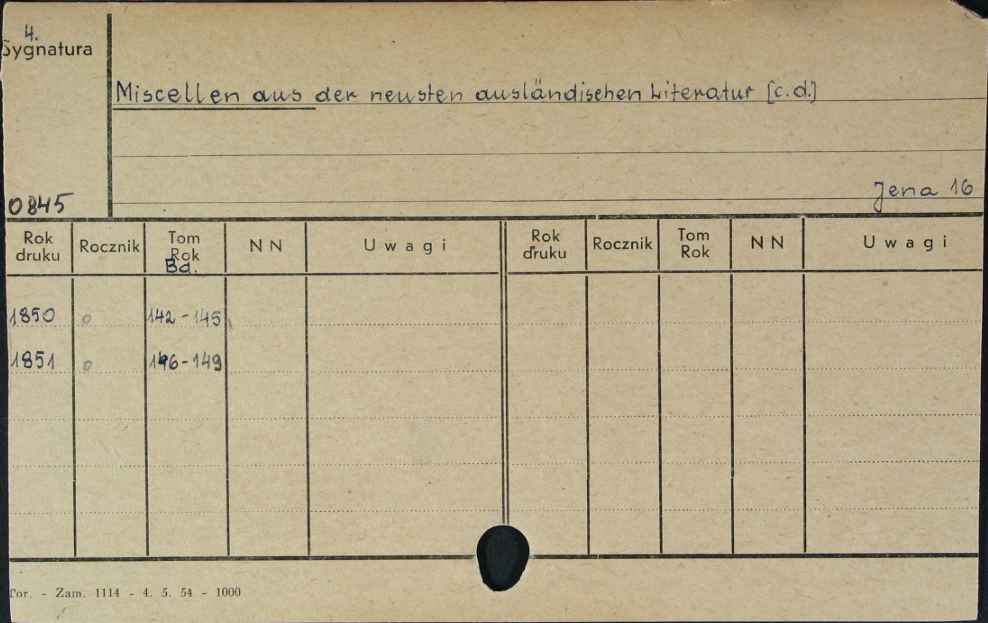 4.
Sygnatura
Miscellen aus der neusten ausländischen Literatur [c.d.]
0845
Jena 16
Rok druku Rocznik Tom Rok Bd. NN Uwagi Rok druku Rocznik Tom Rok NN Uwagi
1850 o 142-145
1851 o 146-149
Tor. - Zam. 1114 - 4. 5. 54 - 1000